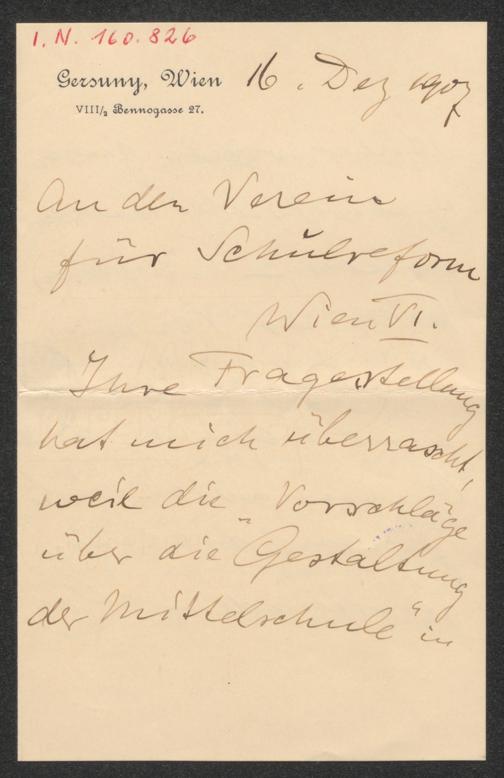 I.N. 160.826
Gersuny, Wien
VIII/2 Bennogasse 27.
16. Dez 1907
An den Verein
für Schulreform
Wien VI.
Ihre Fragestellung
hat mich überrascht,
weil die Vorschläge
über die „Gestaltung
der Mittelschule“ in